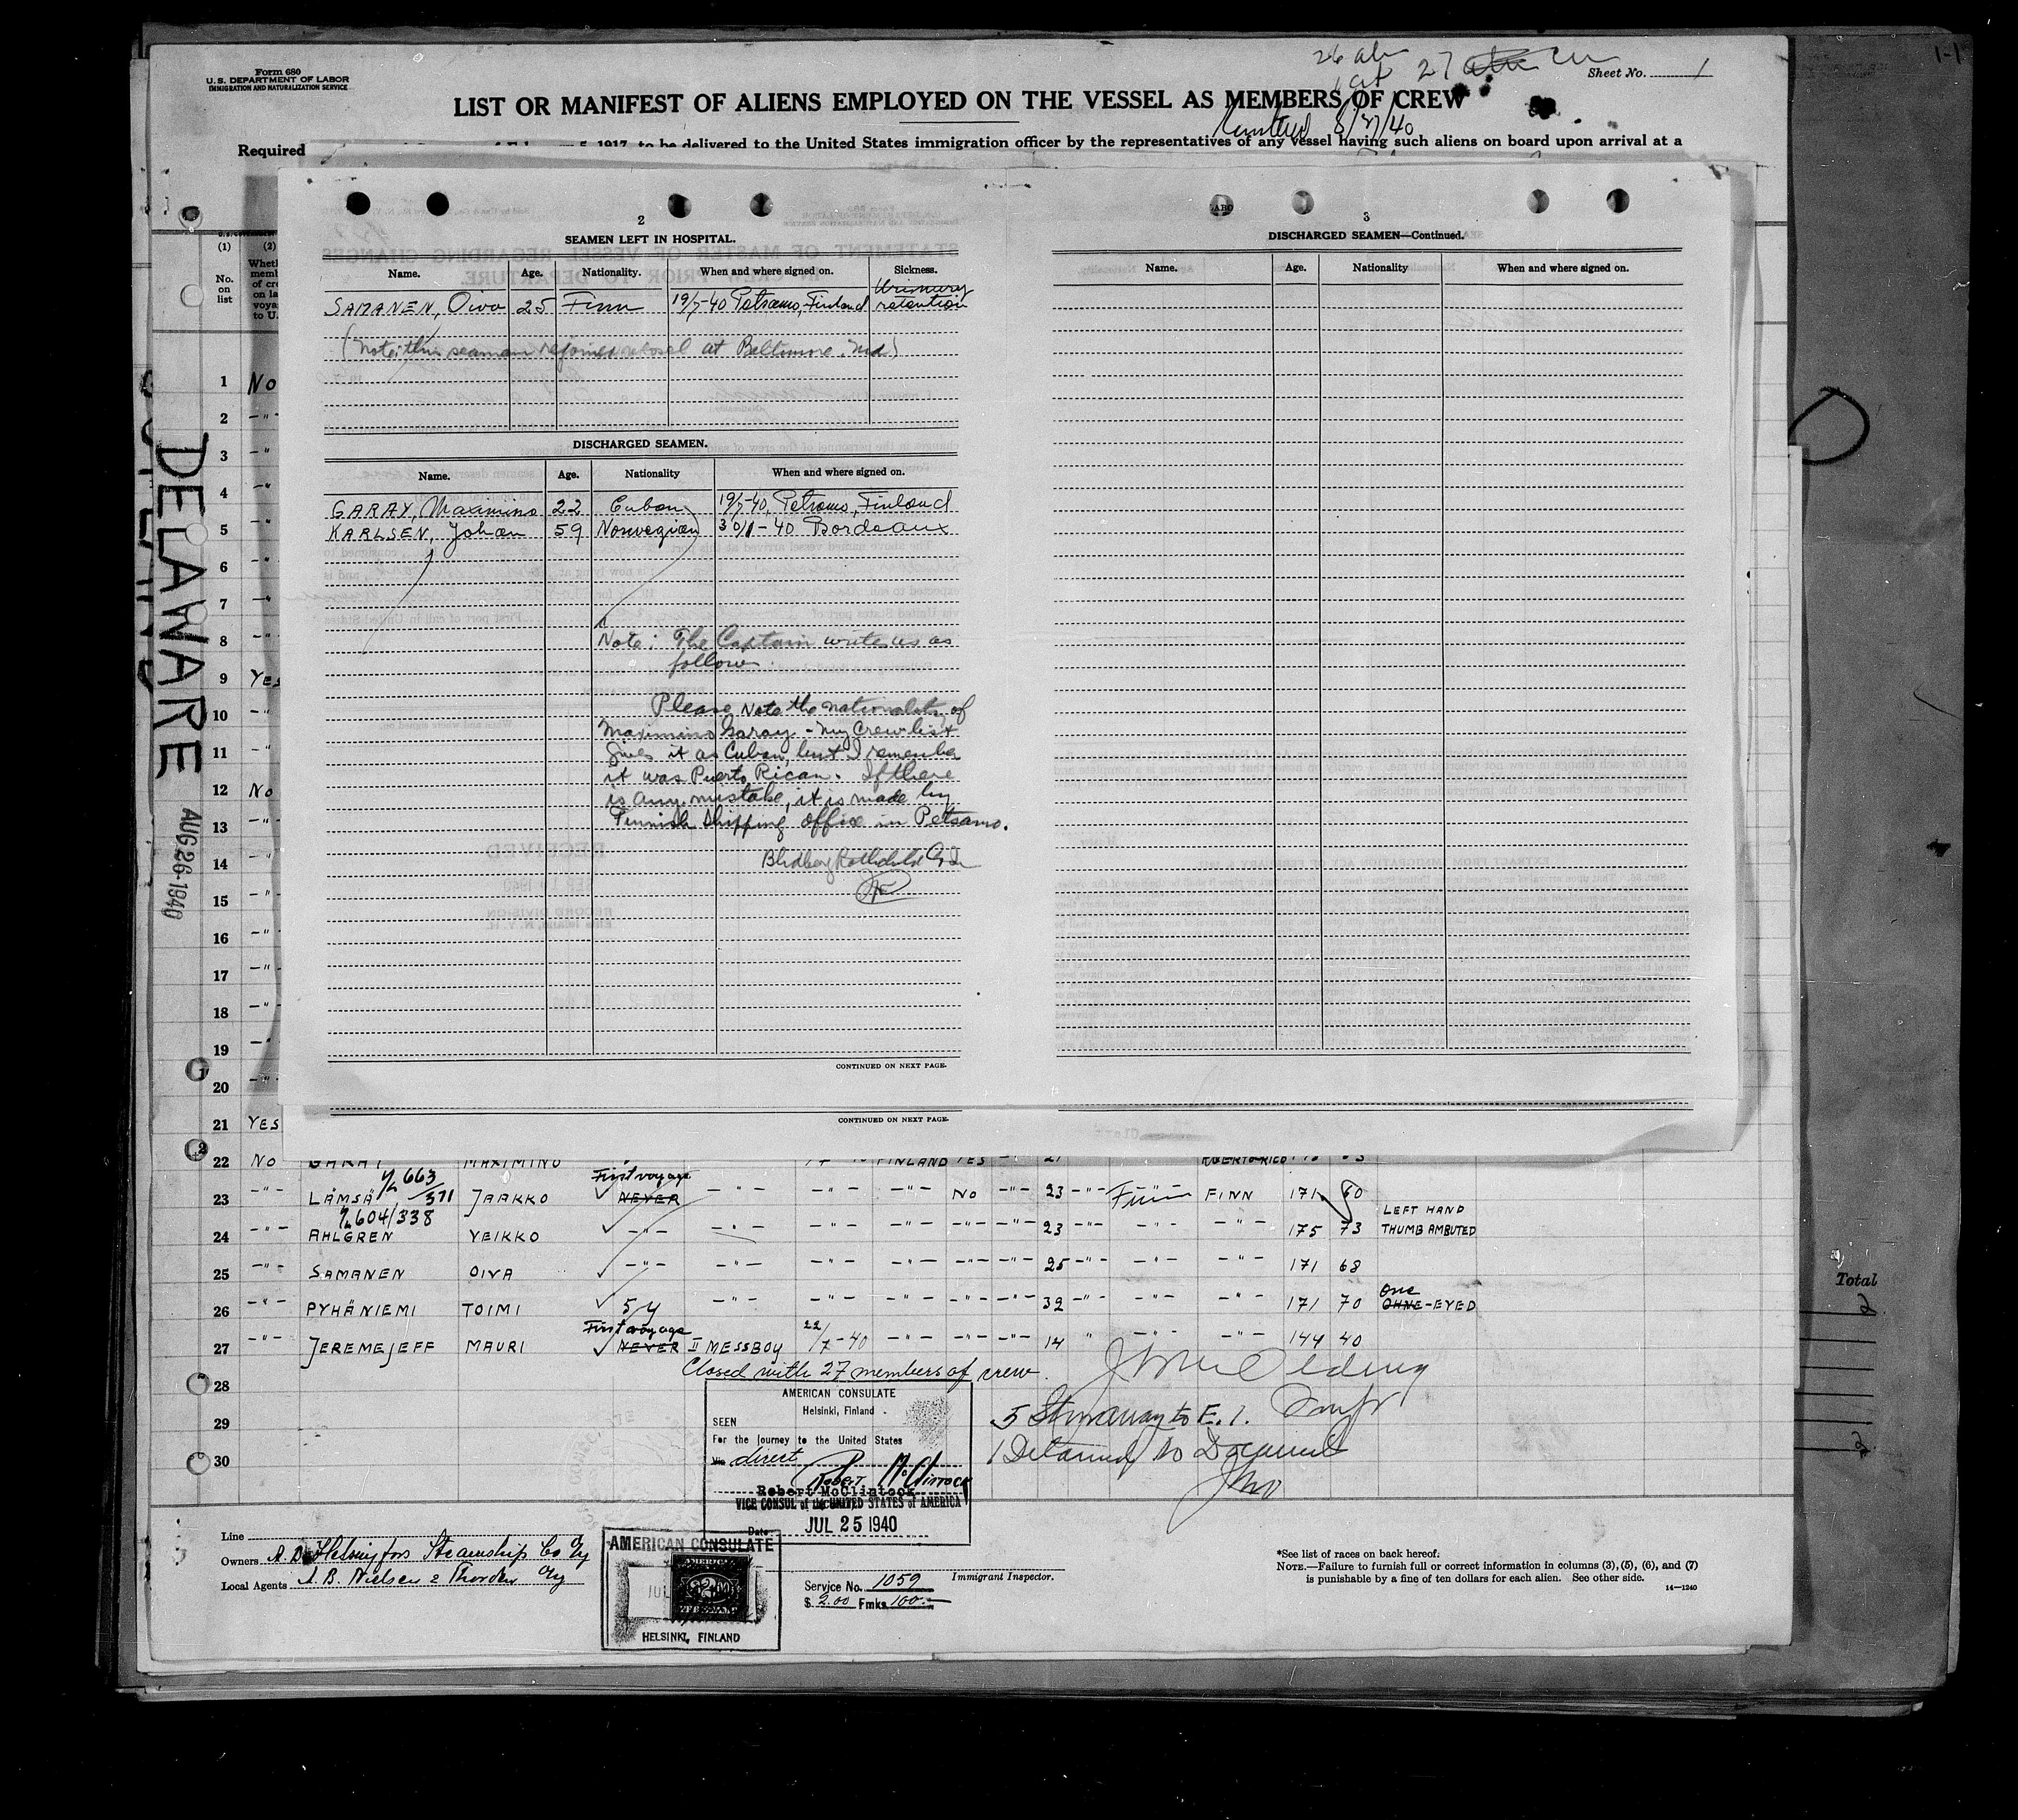 Form 680
U.S. DEPARTMENT OF LABOR
IMMIGRATION AND NATURALIZATION SERVICE
Sheet No. 1
LIST OR MANIFEST OF ALIENS EMPLOYED ON THE VESSEL AS MEMBERS OF CREW
8/27/40
Required
5, 1917, to be delivered to the United States immigration officer by the representatives of any vessel having such aliens on board upon arrival at a
2
SEAMEN LEFT IN HOSPITAL.
Name. Age. Nationality. When and where signed on. Sickness.
SAMANEN, Oiva 25 Finn 19/7-40 Petsamo, Finland Urinary retention
(Note: this seaman rejoined vessel at Baltimore. Md)
DISCHARGED SEAMEN.
Name. Age. Nationality When and where signed on.
GARAY, Maximino 22 Cuban 19/7-40, Petsamo, Finland
KARLSEN, Johan 59 Norwegian 30/1-40 Bordeaux
Note: The Captain writes us as
follows.
Please Note the nationality of
Maximino Garay - My Crew list
gives it as Cuban, but I remember
it was Puerto Rican. If there
is any mistake, it is made by
Finnish Shipping office in Petsamo.
CONTINUED ON NEXT PAGE.
CONTINUED ON NEXT PAGE.
3
DISCHARGED SEAMEN—Continued.
Name. Age. Nationality When and where signed on.
(1) (2)
No. on list
DELAWARE
AUG 26 1940
1 No
2 -"-
3 -"-
4 -"-
5 -"-
6 -"-
7 -"-
8 -"-
9 Yes
10 -"-
11 -"-
12 No
13 -"-
14 -"-
15 -"-
16 -"-
17 -"-
18 -"-
19 -"-
20 -"-
21 YES
22 No GARAY MAXIMINO FINLAND YES -"- 21 PUERTO RICO
663/371 First voyage
23 -"- LÄMSÄ JAAKKO NEVER -"- -"- -"- No -"- 23 -"- Finn FINN 171 60
604/338
24 -"- AHLGREN VEIKKO -"- -"- -"- -"- -"- -"- 23 -"- -"- -"- 175 73 LEFT HAND THUMB AMBUTED
25 -"- SAMANEN OIVA -"- -"- -"- -"- -"- -"- 25 -"- -"- -"- 171 68
26 -"- PYHÄNIEMI TOIMI 5 y -"- -"- -"- -"- -"- 32 -"- -"- -"- 171 70 One OHNE-EYED
First voyage
27 -"- JEREMEJEFF MAURI NEVER II MESSBOY 22/7-40 -"- -"- -"- 14 " -"- -"- 144 40
Closed with 27 members of crew.
28
29
30
AMERICAN CONSULATE
Helsinki, Finland.
SEEN
For the journey to the United States
Via direct
Robert McClintock
VICE CONSUL of the UNITED STATES of AMERICA
Date: JUL 25 1940
5 Stowaway to E. I.
1 Detained No Document
Line
Owners A. B. Helsingfors Steamship Co Oy
Local Agents A. B. Nielsen & Thorden Oy
AMERICAN CONSULATE
HELSINKI, FINLAND
Service No. 1059
$ 2.00 Fmks 100.-
Immigrant Inspector.
*See list of races on back hereof.
NOTE.—Failure to furnish full or correct information in columns (3), (5), (6), and (7)
is punishable by a fine of ten dollars for each alien. See other side.
14—1240
Total